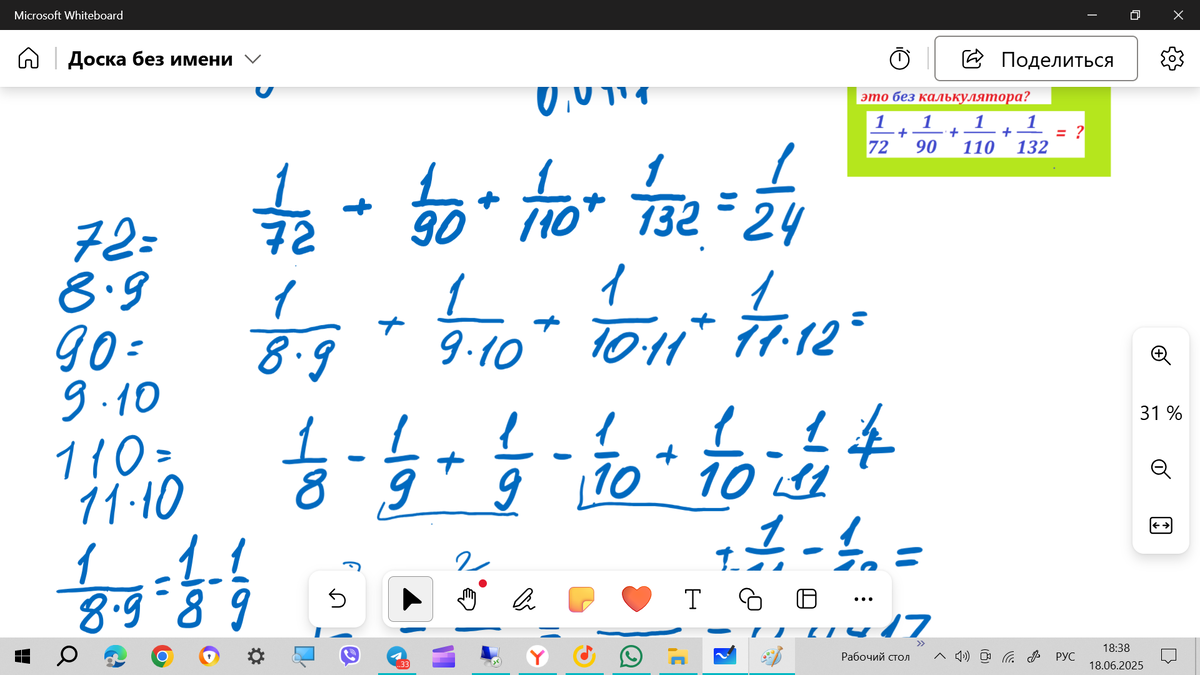 Microsoft Whiteboard
Доска без имени
Поделиться
это без калькулятора?
1/72 + 1/90 + 1/110 + 1/132 = ?
1/72 + 1/90 + 1/110 + 1/132 = 1/24
72=
8·9
1/8·9 + 1/9·10 + 1/10·11 + 1/11·12 =
90=
9·10
110=
11·10
1/8 - 1/9 + 1/9 - 1/10 + 1/10 - 1/11
1/8·9 = 1/8 - 1/9
31 %
T
33
Рабочий стол
РУС
18:38
18.06.2025